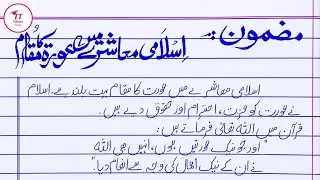 مضمون:
اسلامی معاشرے میں عورت کا مقام
اسلامی معاشرے میں عورت کا مقام بہت بلند ہے۔ اسلام
نے عورت کو عزت، احترام اور حقوق دیے ہیں۔
قرآن میں اللہ تعالیٰ فرماتے ہیں:
"اور جو نیک عورتیں ہوں، انہیں بھی اللہ
نے ان کے نیک اعمال کی وجہ سے انعام دیا۔"